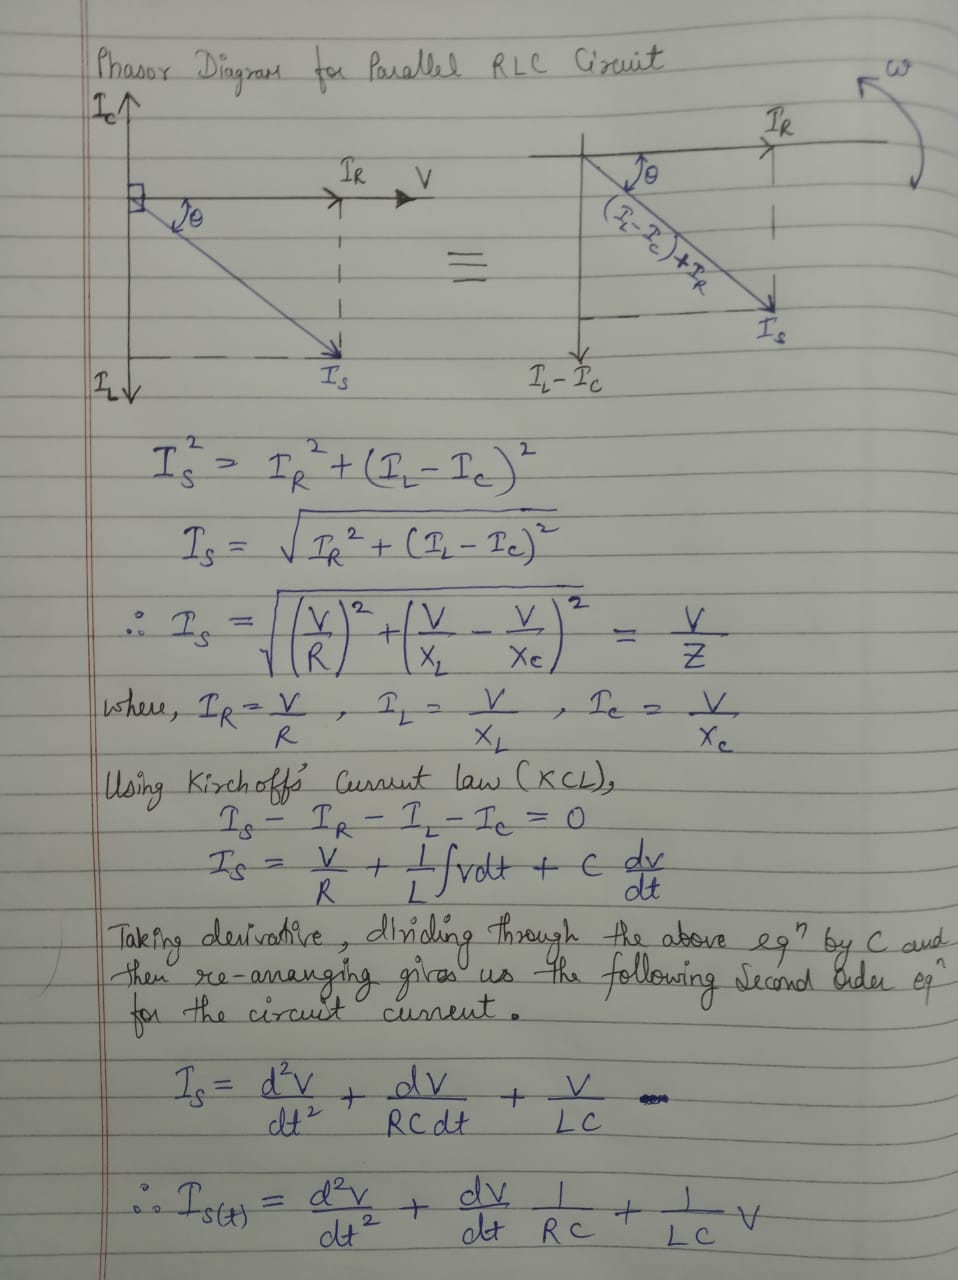 Phasor Diagram for Parallel RLC Circuit
I_C
I_R V
θ
I_S
I_L
≡
ω
I_R
θ
(I_L - I_C) + I_R
I_S
I_L - I_C
I_S² = I_R² + (I_L - I_C)²
I_S = √(I_R² + (I_L - I_C)²)
∴ I_S = √((V/R)² + (V/X_L - V/X_C)²) = V/Z
where, I_R = V/R , I_L = V/X_L , I_C = V/X_C
Using Kirchoff's Current law (KCL),
I_S - I_R - I_L - I_C = 0
I_S = V/R + 1/L ∫vdt + C dv/dt
Taking derivative, dividing through the above eqⁿ by C and
then re-arranging gives us the following Second Order eqⁿ
for the circuit current.
I_S = d²V/dt² + dV/RCdt + V/LC
∴ I_S(t) = d²V/dt² + dV/dt 1/RC + 1/LC V